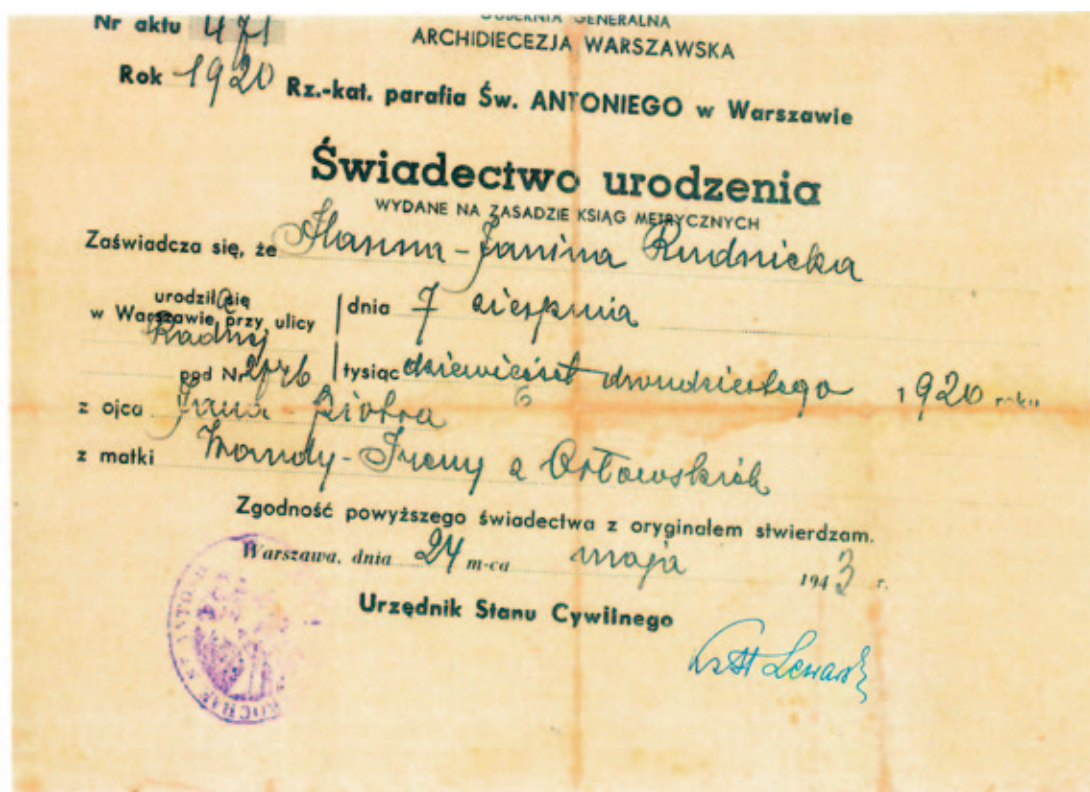 GUBERNIA GENERALNA
Nr aktu 471
ARCHIDIECEZJA WARSZAWSKA
Rok 1920 Rz.-kat. parafia Św. ANTONIEGO w Warszawie
Świadectwo urodzenia
WYDANE NA ZASADZIE KSIĄG METRYCZNYCH
Zaświadcza się, że Hanna-Janina Rudnicka
urodziła się
w Warszawie przy ulicy dnia 7 sierpnia
Radnej
pod Nr tysiąc dziewięćset dwudziestego 1920 roku
z ojca Jana-Piotra
z matki Wandy-Ireny z Orłowskich
Zgodność powyższego świadectwa z oryginałem stwierdzam.
Warszawa, dnia 24 m-ca maja 1943 r.
Urzędnik Stanu Cywilnego